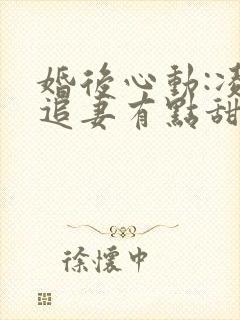 婚後心動:凌
追妻有點甜
徐懷中